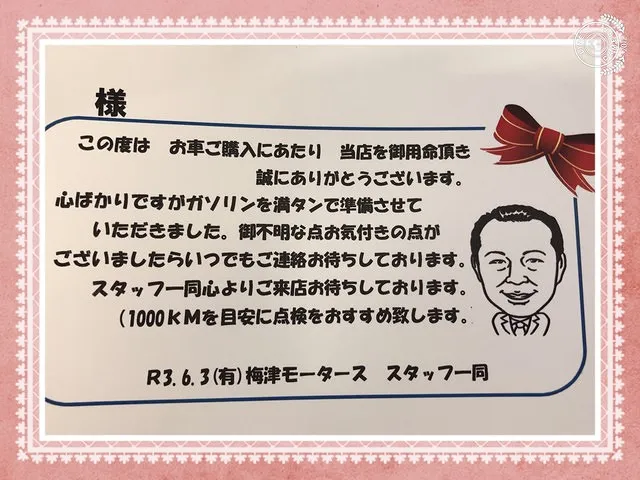 様
この度は　お車ご購入にあたり　当店を御用命頂き
誠にありがとうございます。
心ばかりですがガソリンを満タンで準備させて
いただきました。御不明な点お気付きの点が
ございましたらいつでもご連絡お待ちしております。
スタッフ一同心よりご来店お待ちしております。
（1000KMを目安に点検をおすすめ致します。
R3.6.3(有)梅津モータース　スタッフ一同